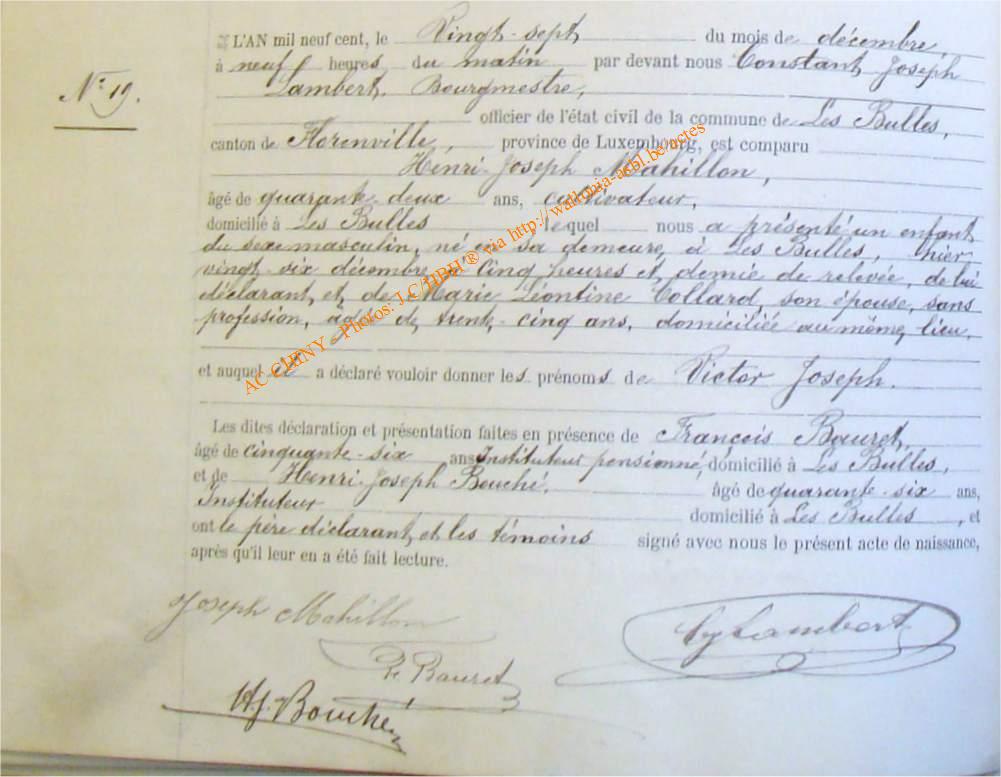 L'AN mil neuf cent, le Vingt-sept du mois de décembre,
à neuf heures du matin par devant nous Constant Joseph
N° 19.
Lambert, Bourgmestre,
officier de l'état civil de la commune de Les Bulles,
canton de Florenville, province de Luxembourg, est comparu
Henri-Joseph Mahillon,
âgé de quarante-deux ans, cultivateur,
domicilié à Les Bulles lequel nous a présenté un enfant
du sexe masculin, né en sa demeure, à Les Bulles, hier
vingt-six décembre, à cinq heures et demie de relevée, de lui
déclarant, et de Marie Léontine Collard, son épouse, sans
profession, âgée de trente-cinq ans, domiciliée au même lieu,
et auquel il a déclaré vouloir donner les prénoms de Victor Joseph.
Les dites déclaration et présentation faites en présence de François Bauret,
âgé de cinquante-six ans Instituteur pensionné, domicilié à Les Bulles,
et de Henri-Joseph Bouché, âgé de quarante-six ans,
Instituteur domicilié à Les Bulles, et
ont le père déclarant et les témoins signé avec nous le présent acte de naissance,
après qu'il leur en a été fait lecture.
Joseph Mahillon
Lambert
Bauret
H.J. Bouché
AC CHINY - Photos: J.C/HBH ® via http://wallonia-asbl.be/actes